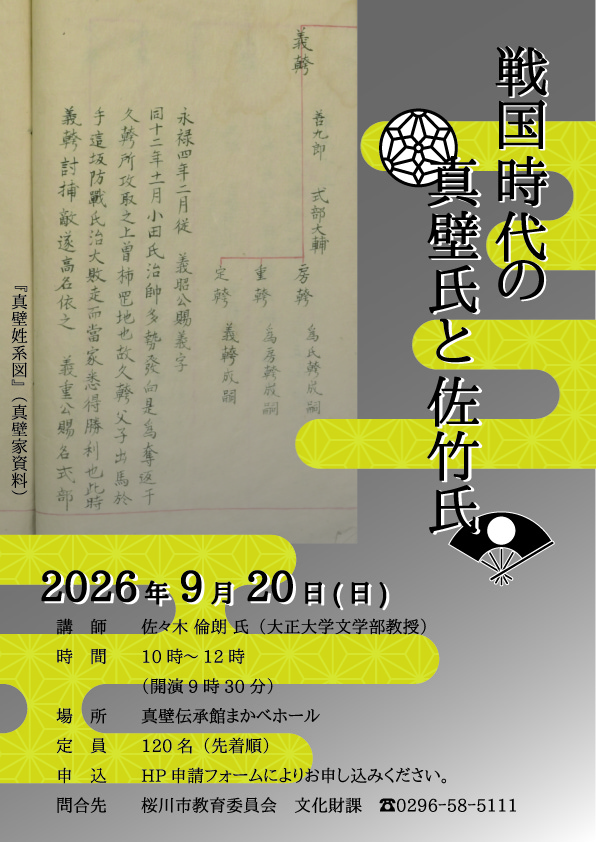 戦国時代の
真壁氏と佐竹氏
義幹
吾九郎 式部大輔
房幹 為氏幹嗣
重幹 為房幹嗣
定幹 義幹嗣
永禄四年二月従 義昭公賜義字
同十二年十一月小田氏治帥多勢発向是為奪返于
久幹所攻取之上曽柿岡地也故久幹父子出馬於
手這坂防戦氏治大敗走而當家悉得勝利也此時
義幹討捕敵遂高名依之 義重公賜名式部
『真壁姓系図』(真壁家資料)
2026年9月20日(日)
講 師 佐々木 倫朗 氏(大正大学文学部教授)
時 間 10時~12時
(開演9時30分)
場 所 真壁伝承館まかべホール
定 員 120名(先着順)
申 込 HP申請フォームによりお申し込みください。
問合先 桜川市教育委員会 文化財課 ☎0296-58-5111